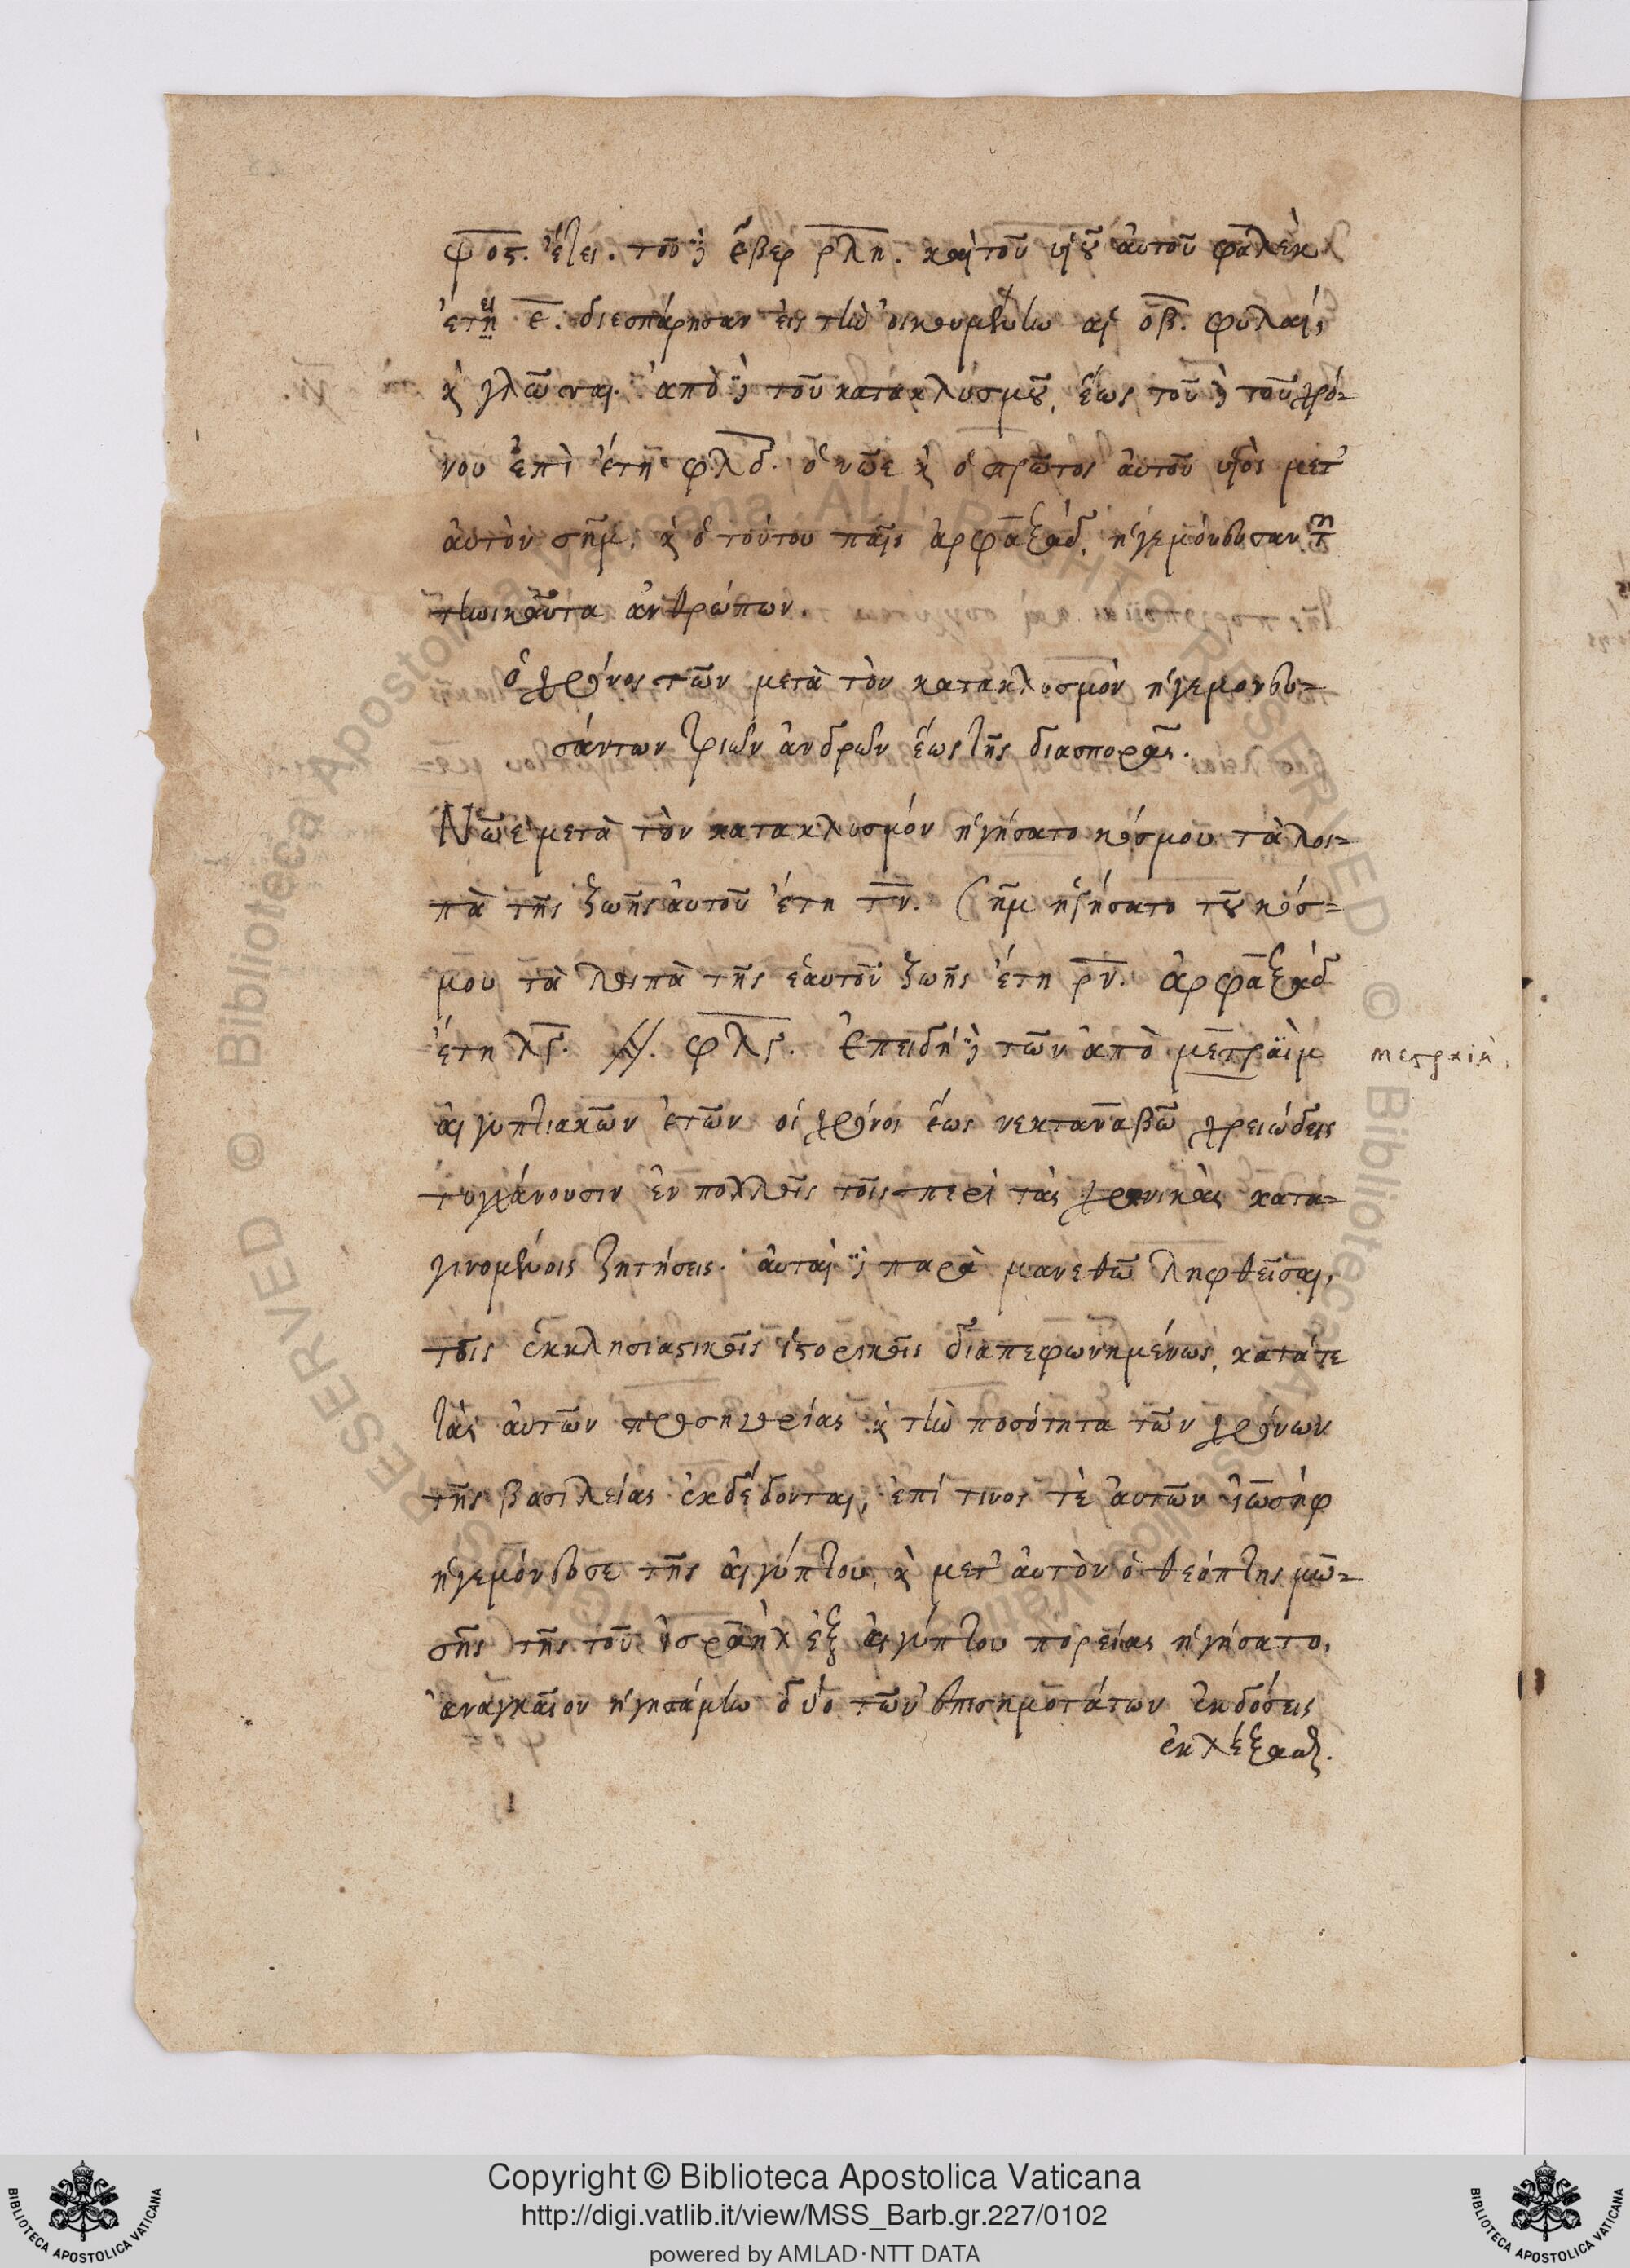 ͵βψος. ἔτει. τοῦ δὲ ἔβερ ρλη. καὶ τοῦ υἱοῦ αὐτοῦ φαλὲκ
ἔτη ε. διεσπάρησαν εἰς τὴν οἰκουμένην αἱ οβ. φυλαὶ,
καὶ γλῶσσαι. ἀπὸ δὲ τοῦ κατακλυσμοῦ, ἕως τοῦδε τοῦ χρό-
νου ἐπὶ ἔτη φλδ. ὁ νῶε καὶ ὁ πρῶτος αὐτοῦ υἱὸς μετ'
αὐτὸν σῆμ, καὶ ὁ τούτου παῖς ἀρφαξὰδ, ἡγεμόνευσαν τῶν
τηνικαῦτα ἀνθρώπων.
ὁ χρόνος τῶν μετὰ τὸν κατακλυσμὸν ἡγεμονευ-
σάντων τριῶν ἀνδρῶν ἕως τῆς διασπορᾶς.
Νῶε μετὰ τὸν κατακλυσμόν ἡγήσατο κόσμου τὰ λοι-
πὰ τῆς ζωῆς αὐτοῦ ἔτη τν. Σῆμ ἡγήσατο τοῦ κόσ-
μου τὰ λοιπὰ τῆς ἑαυτοῦ ζωῆς ἔτη ρν. ἀρφαξὰδ
ἔτη λς. φλς. ἐπειδὴ δὲ τῶν ἀπὸ μετραῒμ
αἰγυπτιακῶν ἐτῶν οἱ χρόνοι ἕως νεκταναβῶ χρειώδεις
τυγχάνουσιν ἐν πολλοῖς τοῖς περὶ τὰς χρονικὰς κατα-
γινομένοις ζητήσεις. αὗται δὲ παρὰ μανεθῶ ληφθεῖσαι,
τοῖς ἐκκλησιαστικοῖς ἱστορικοῖς διαπεφωνημένως, κατά τε
τὰς αὐτῶν προσηγορίας καὶ τὴν ποσότητα τῶν χρόνων
τῆς βασιλείας ἐκδέδονται, ἐπί τινος τὲ αὐτῶν ἰωσὴφ
ἡγεμόνευσε τῆς αἰγύπτου, καὶ μετ' αὐτὸν ὁ θεόπτης μω-
σῆς τῆς τοῦ ἰσραὴλ ἐξ αἰγύπτου πορείας ἡγήσατο,
ἀναγκαῖον ἡγησάμην δύο τῶν ἐπισημοτάτων ἐκδόσεις
ἐκλέξασθαι.
Copyright © Biblioteca Apostolica Vaticana
http://digi.vatlib.it/view/MSS_Barb.gr.227/0102
powered by AMLAD·NTT DATA
BIBLIOTECA APOSTOLICA VATICANA
BIBLIOTECA APOSTOLICA VATICANA